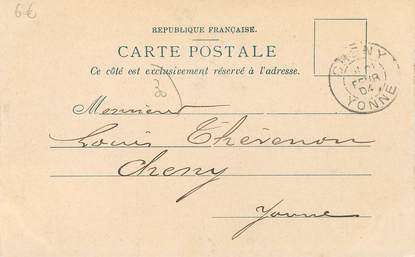 6€
RÉPUBLIQUE FRANÇAISE.
CARTE POSTALE
Ce côté est exclusivement réservé à l'adresse.
CHENY
FEVR
04
YONNE
Monsieur
Louis Thévenon
Cheny
Yonne